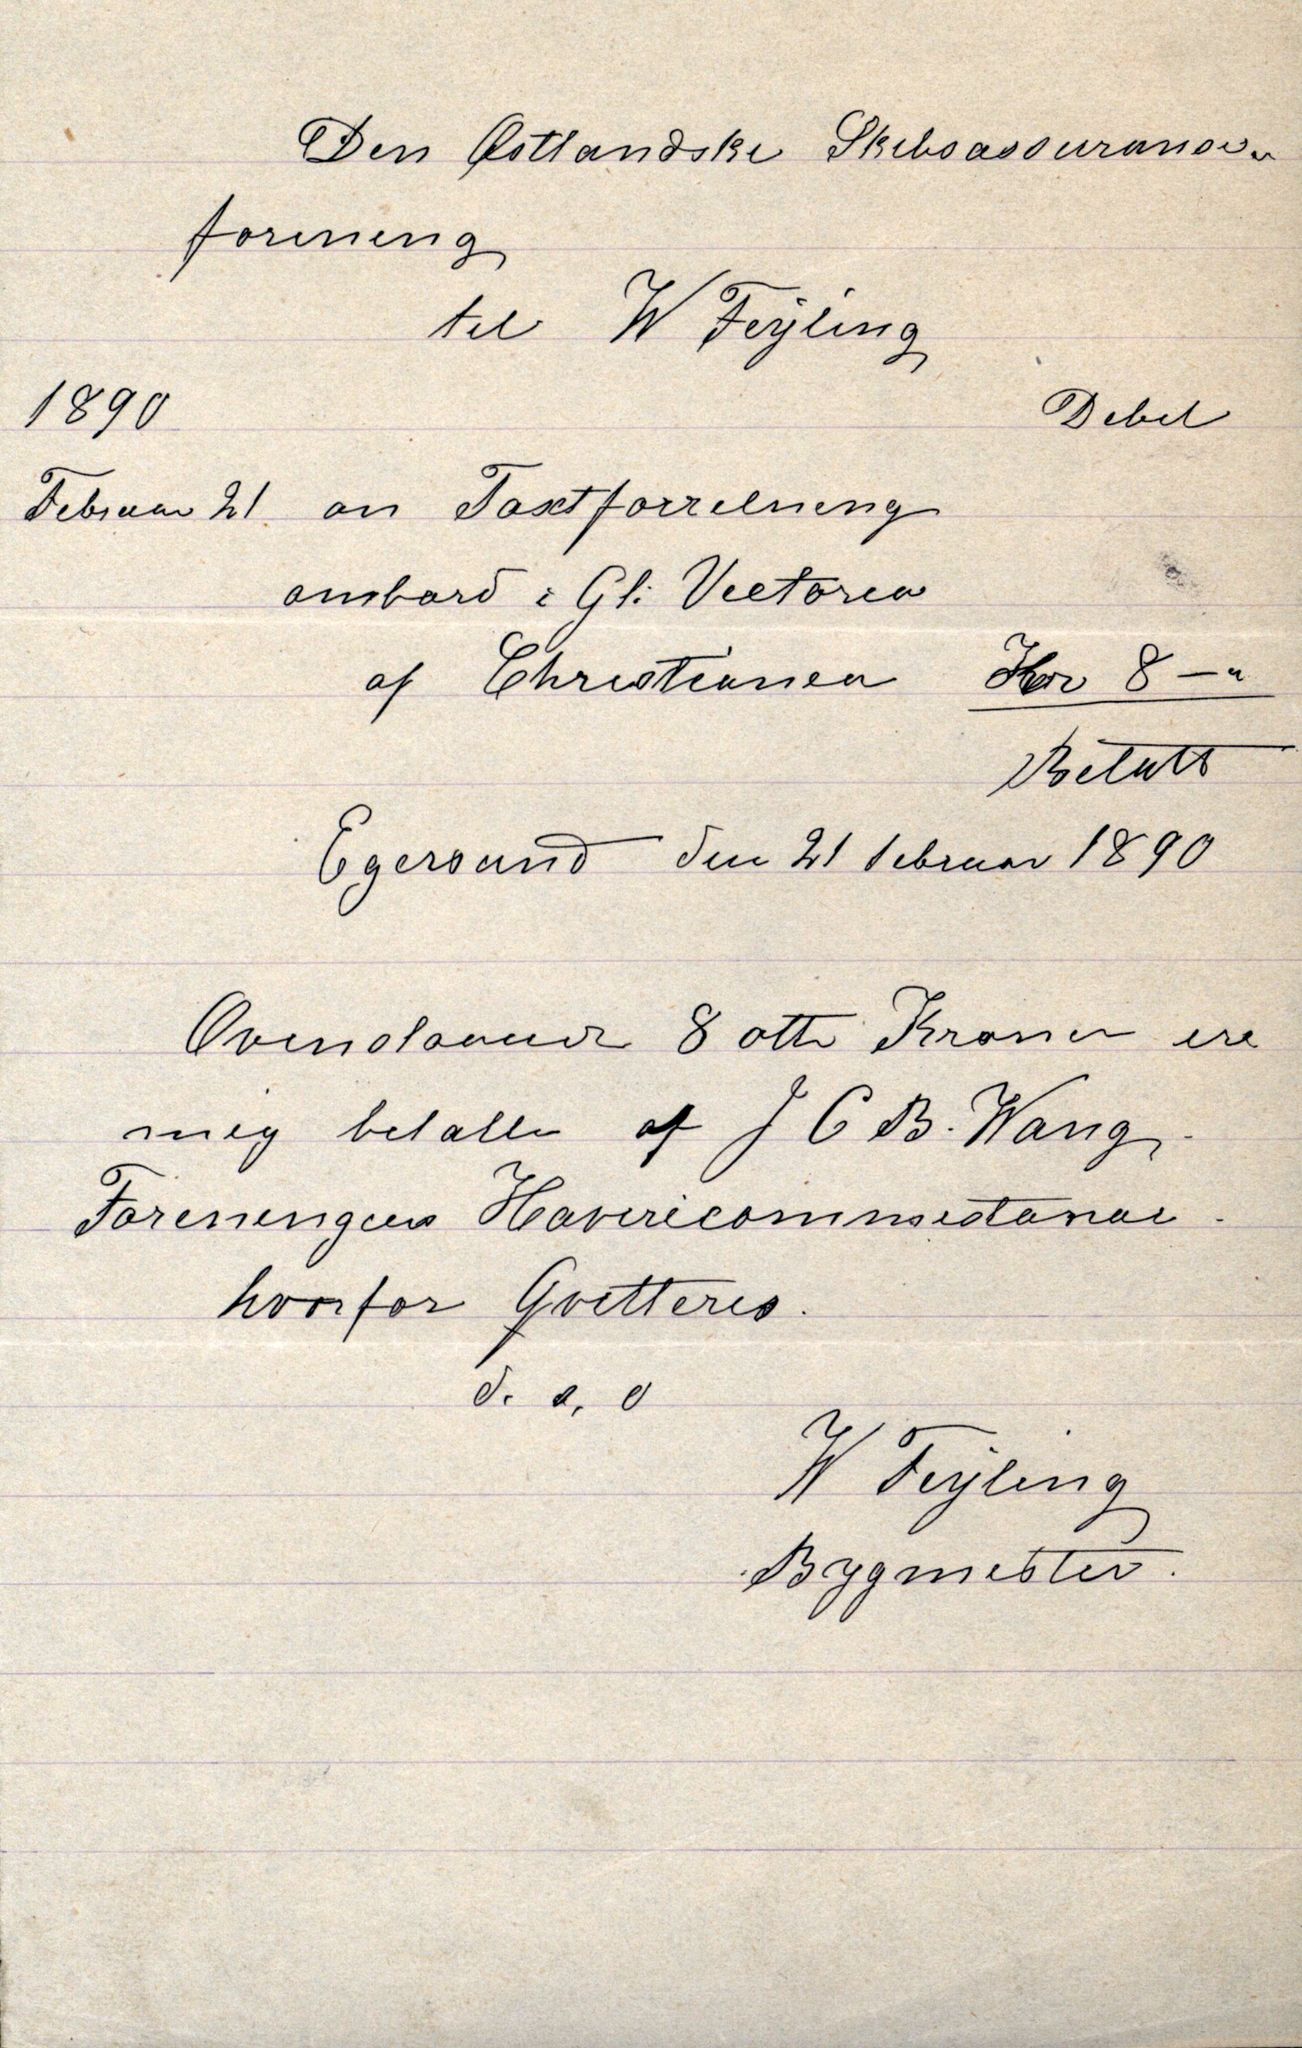 Den Østlandske Skibsassurance„
forening
til W Feÿling
1890 Debet
Februar 21 an Taxtforretning
ombord i Gl: Victoria
af Christiania Kr 8 — „
Betalt
Egersund den 21 februar 1890
Ovenstaaende 8 otte Kroner ere
mig betalte af J C B. Wang.
Foreningens Havericommistarae.
hvorfor Qvitteres.
d. s, o
W Feÿling
Bygmester.